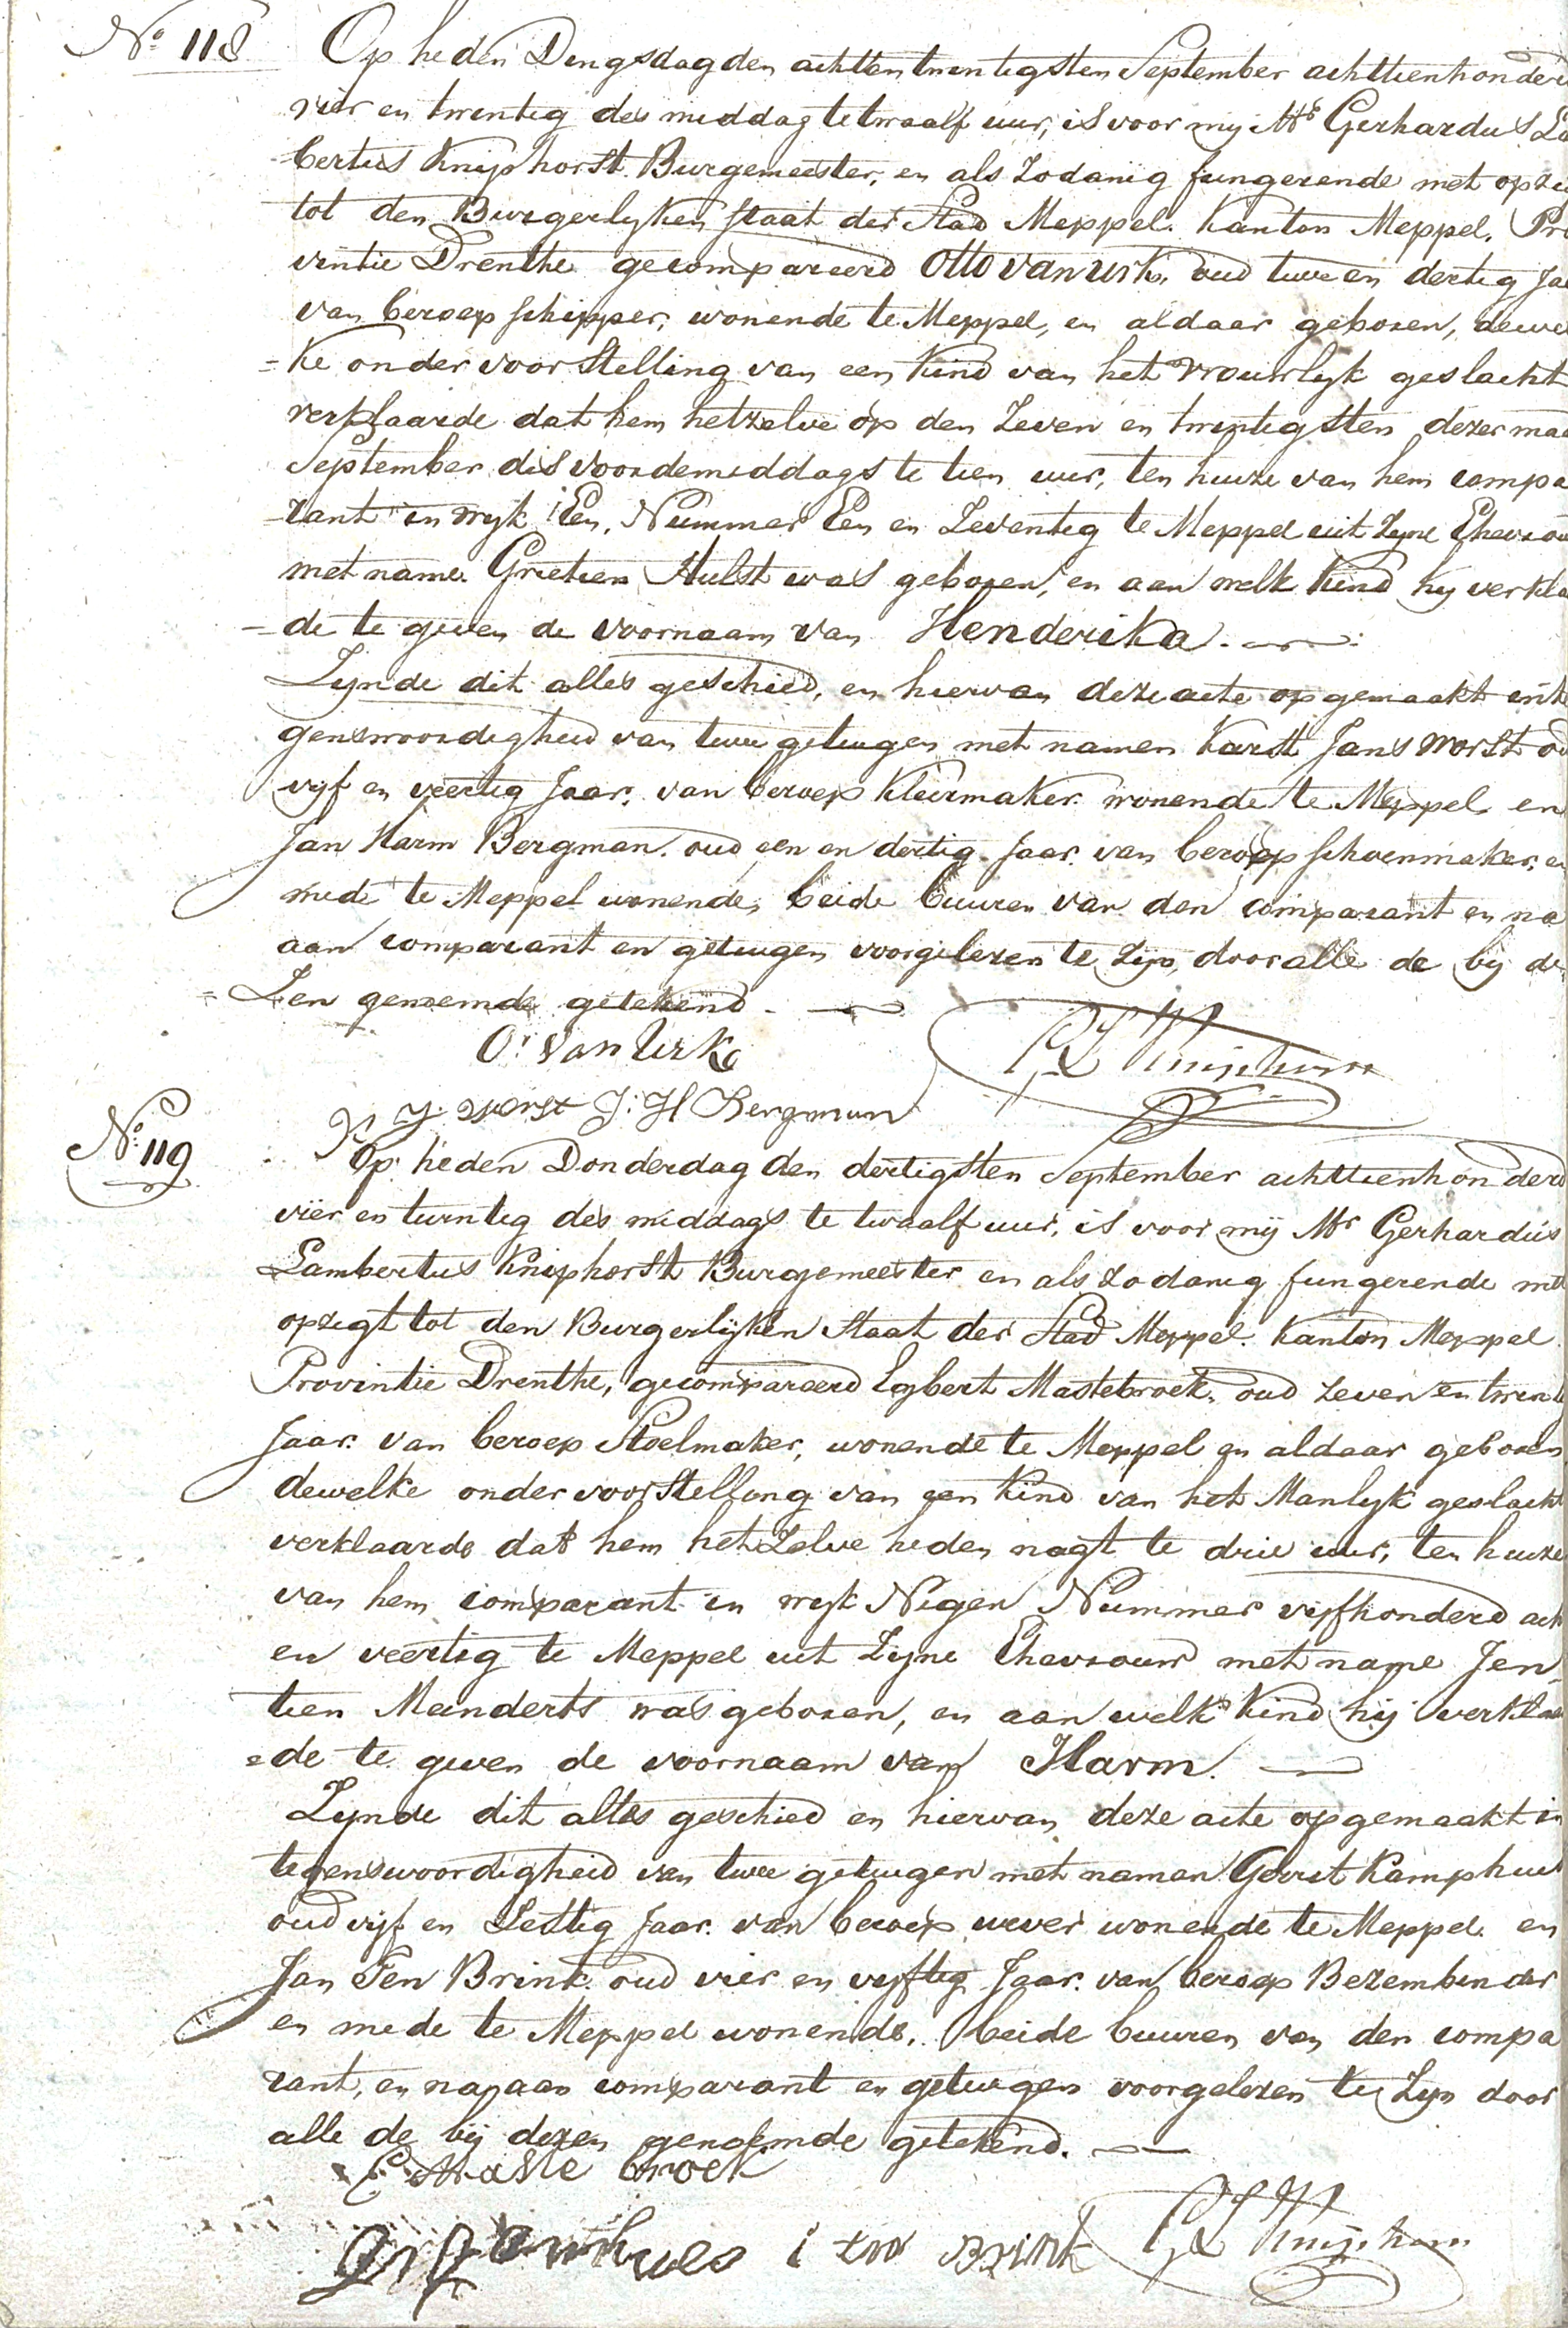 No 118 Op heden Dingsdag den achtten twentigsten September achttienhonderd
vier en twentig des middag te twaalf uur, is voor mij Mr Gerhardus La
bertus Knyphorst Burgemeester, en als Zodanig fungerende met opzi
tot den Burgerlyken Staat der Stad Meppel. Kanton Meppel, Pro
vintie Drenthe gecompareerd Otto van urk, oud twee en dertig Jaa
van beroep schipper, wonende te Meppel, en aldaar geboren, dewel
=ke onder voorstelling van een Kind van het vrouwlyk geslacht
verklaarde dat hem hetzelve op den Zeven en twentigsten dezer maa
September dis voordemiddags te tien uur, ten huize van hem compa
=rant in wyk Een, Nummer Een en Zeventig te Meppel uit Zyne Ehevrou
met name Grietien Hulst was geboren, en aan welk Kind hy verkla
=de te geven de voornaam van Henderika.
Zynde dit alles geschied, en hiervan deze acte opgemaakt in te
genswoordigheid van twee getuigen met namen Karst Jans Worst ou
vyf en veertig Jaar, van beroep Kleermaker wonende te Meppel en
Jan Harm Bergman oud een en dertig Jaar van beroep schoenmaker, en
mede te Meppel wonende, beide buuren van den comparant en na
aan comparant en getuigen voorgelezen te Zyn, door alle de by de
=Zen genoemde getekend.
O: van Urk GL Knijphorst
K J worst J: H Bergman
No 119 Op heden Donderdag den dertigsten September achttienhonderd
vier en twintig des middags te twaalf uur, is voor mij Mr Gerhardus
Lambertus Knyphorst Burgemeester en als zodanig fungerende met
opzigt tot den Burgerlijken Staat der Stad Meppel. Kanton Meppel
Provintie Drenthe, gecompareerd Egbert Mastebroek, oud zeven en twenti
Jaar van beroep Stoelmaker, wonende te Meppel en aldaar geboren
dewelke onder voorstelling van een Kind van het Manlyk geslacht
verklaarde dat hem het Zelve heden nagt te drie uur, ten huize
van hem comparant in wyk Negen Nummer vijfhonderd acht
en veertig te Meppel uit Zyne Ehevrouw met name Jen=
tien Meinderts was geboren, en aan welk Kind hij verklaa
=de te geven de voornaam van Harm.
Zynde dit alles geschied en hiervan deze acte opgemaakt in
tegenswoordigheid van twee getuigen met namen Gerrit Kamphuis
oud vijf en Sestig Jaar van beroep wever wonende te Meppel en
Jan Ten Brink oud vier en vyftig Jaar van beroep Bezembinder
en mede te Meppel wonende, beide buuren van den compa
rant, en na aan comparant en getuigen voorgelezen te Zyn door
alle de bij dezen genoemde getekend.
E Maste broek
i ten Brink GL Knijphorst